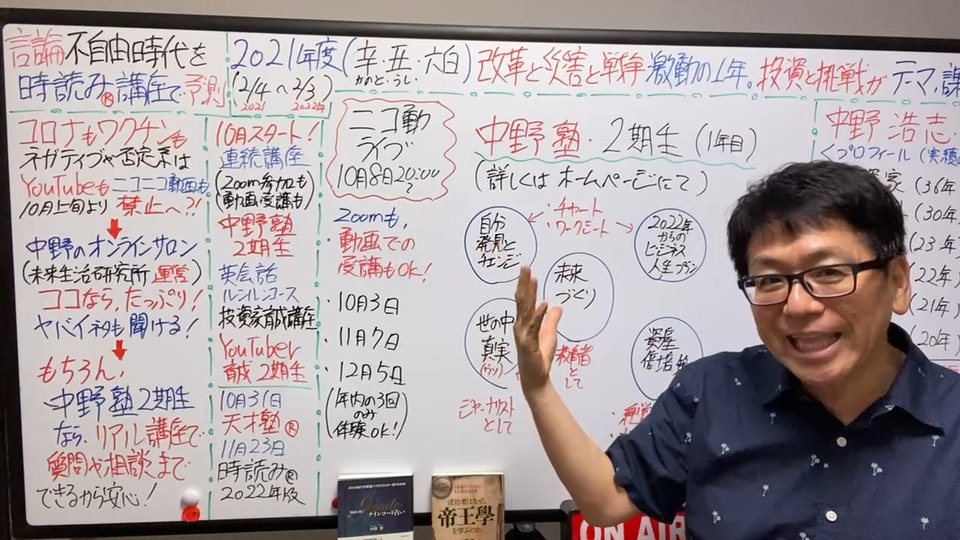 言論不自由時代を
時読み®講座で予測
2021年度(辛・丑・六白)改革と災害と戦争 激動の1年。投資と挑戦がテマ、課
かのと・うし
(2/4〜2/3)
2021 2022年
コロナもワクチンも
ネガティブや否定系は
YouTubeもニコニコ動画も
10月上旬より 禁止へ?!
中野のオンラインサロン
(未来生活研究所 運営)
ココなら、たっぷり!
ヤバイネタも聞ける!
もちろん!
中野塾2期生
なら、リアル講座で
質問や相談まで
できるから安心!
10月スタート!
連続講座
(Zoom参加も)
(動画受講も)
中野塾
2期生
英会話
ルンルンコース
投資家育成講座
YouTuber
育成2期生
10月31日
天才塾®
11月23日
時読み®
2022年版
ニコ動
ライブ
10月8日20:00
〜
Zoomも、
動画での
受講もOK!
・10月3日
・11月7日
・12月5日
(年内の3回
のみ
体験OK!)
中野塾・2期生(1年目)
(詳しくは ホームページにて)
自分
発見と
チェンジ
・チャート
・ワークシート
2022年
からの
ビジネス
人生プラン
未来
づくり
世の中
真実
資産
として
ジャーナリスト
として
中野 浩志
<プロフィール(実績
家(36年
(30年)
(23年)
(22年)
(21年)
(20年)
ナインコード占い
帝王學
を学ぶのか
ON AIR